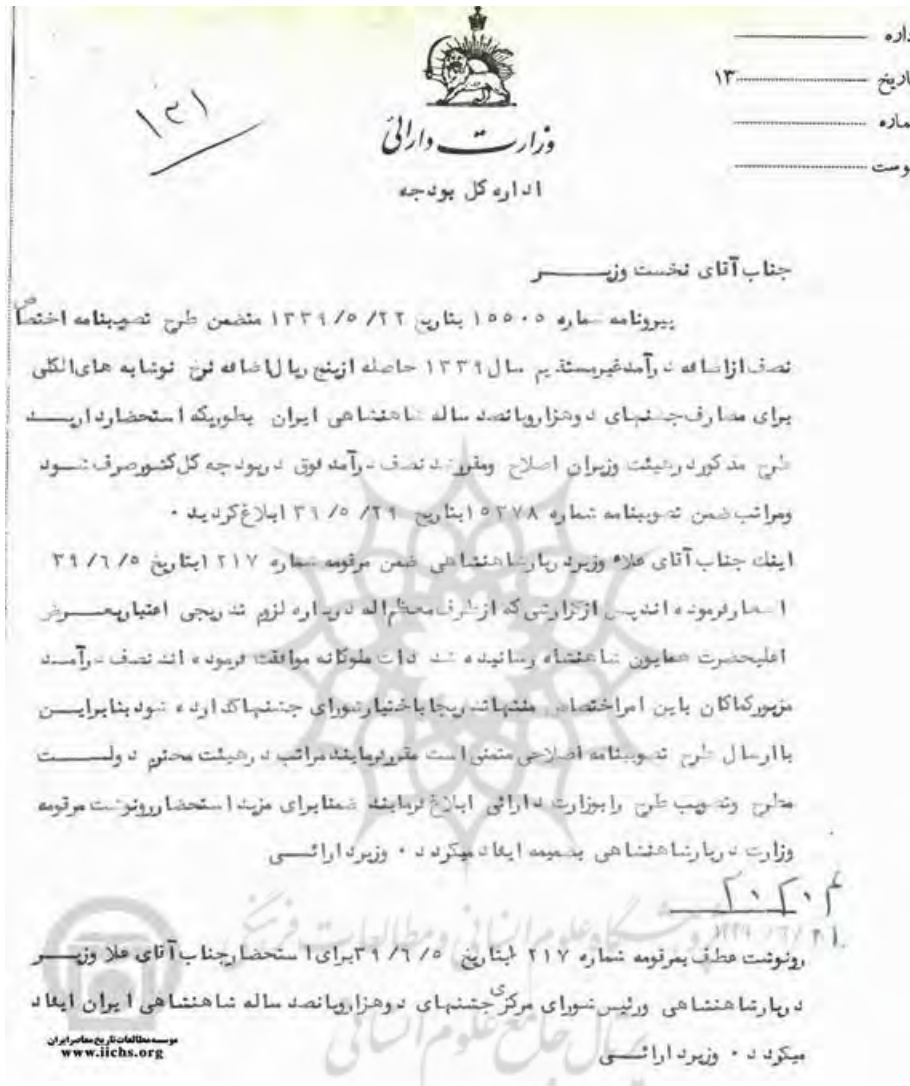 اداره
تاریخ ۱۳
شماره
پیوست
۱۲۱
وزارت دارائی
اداره کل بودجه
جناب آقای نخست وزیـــــر
پیرونامه شماره ۱۵۵۰۵ بتاریخ ۲۲/ ۵/ ۱۳۳۹ متضمن طرح تصویبنامه اختصاص
نصف ازاضافه درآمدغیرمستقیم سال ۱۳۳۹ حاصله ازپنج ریال اضافه نرخ نوشابه های الکلی
برای مصارف جشنهای دوهزاروپانصد ساله شاهنشاهی ایران بطوریکه استحضارداریــــد
طرح مذکوردرهیئت وزیران اصلاح ومقررشد نصف درآمد فوق دربودجه کل کشورصرف شـــود
ومراتب ضمن تصویبنامه شماره ۱۵۳۷۸ بتاریخ ۲۹/ ۵/ ۳۹ ابلاغ گردید ۰
اینک جناب آقای علاء وزیردربارشاهنشاهی ضمن مرقومه شماره ۲۱۷ ۱بتاریخ ۵/ ۶/ ۳۹
اشعارفرموده اندپس ازگزارشی که ازطرف معظم اله درباره لزوم تدریجی اعتباربعــــرض
اعلیحضرت همایون شاهنشاه رسانیده شد ذات ملوکانه موافقت فرموده اند نصف درآمـــد
مزبورکماکان باین امراختصاص منتهاتدریجا باختیارشورای جشنهاگذارده شود بنابرایـــن
باارسال طرح تصویبنامه اصلاحی متمنی است مقررفرمایند مراتب درهیئت محترم دولـــــت
مطرح وتصویب طرح رابوزارت دارائی ابلاغ فرمایند ضمنابرای مزید استحضاررونوشت مرقومه
وزارت دربارشاهنشاهی بضمیمه ایفاد میگردد ۰ وزیردارائـــی
رونوشت عطف بمرقومه شماره ۲۱۷ ۱بتاریخ ۵/ ۶/ ۳۹برای استحضارجناب آقای علا وزیــــر
دربارشاهنشاهی ورئیس شورای مرکزی جشنهای دوهزاروپانصد ساله شاهنشاهی ایران ایفاد
میگردد ۰ وزیردارائـــی
پژوهشگاه علوم انسانی و مطالعات فرهنگی
پرتال جامع علوم انسانی
موسسه مطالعات تاریخ معاصر ایران
www.iichs.org